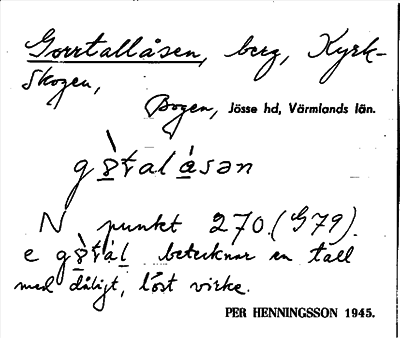 Gorrtallåsen, berg, Kyrk-
skogen,
Bogen, Jösse hd, Värmlands län.
N punkt 270.(G79).
betecknar en tall
med dåligt, löst virke.
PER HENNINGSSON 1945.